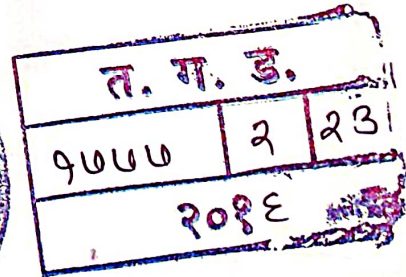 त. ग. ड.
१७७७ २ २३
२०१६